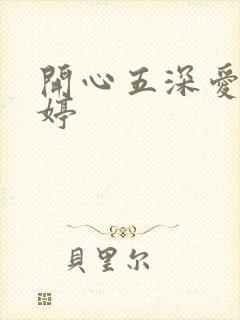 開心五深愛
婷
貝里尔